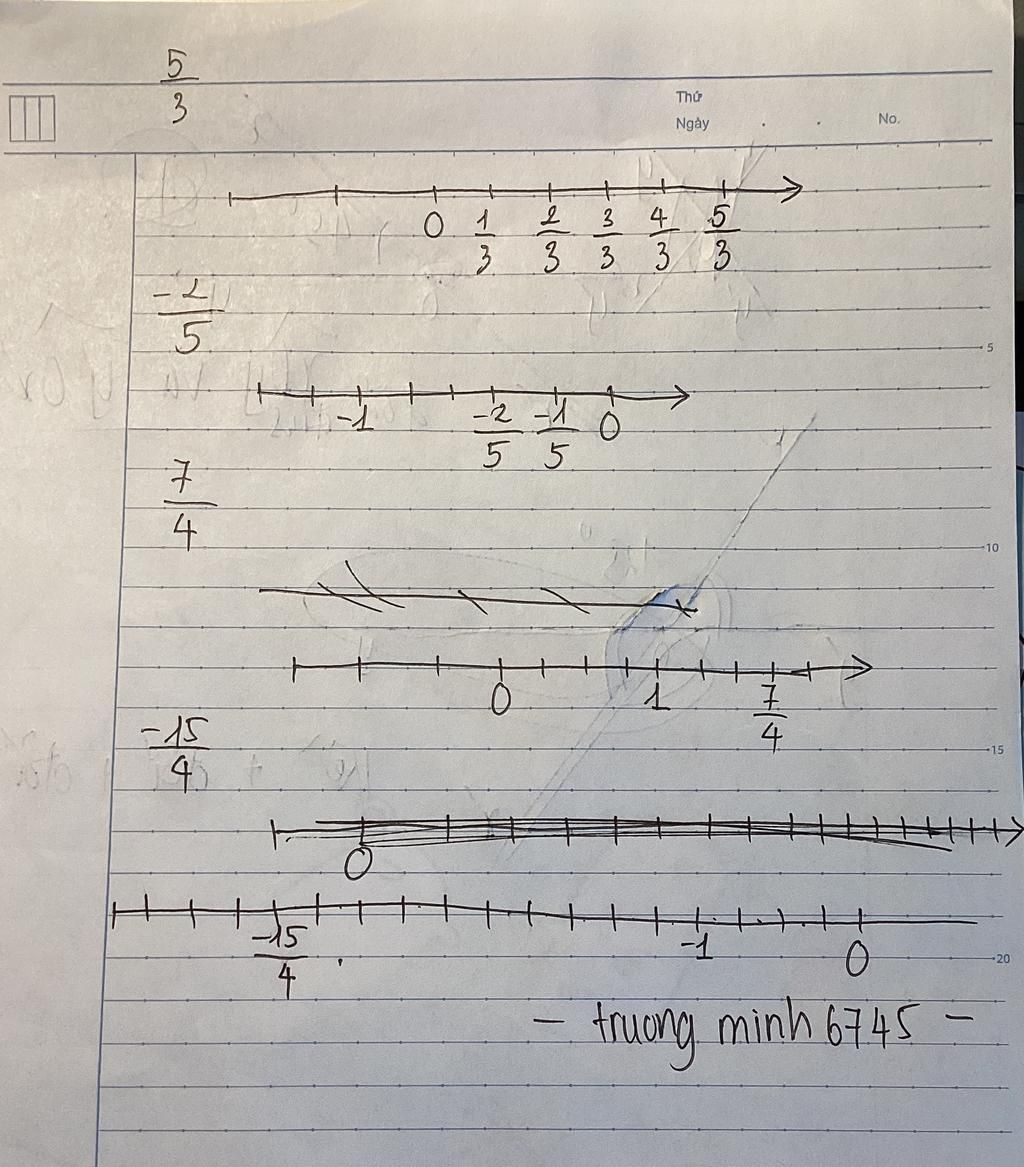 5
3
Thứ
Ngày . . No.
0 1 2 3 4 5
3 3 3 3 3
-2
5
5
-1 -2 -1 0
5 5
7
4
10
0 1 7
4
-15
4
15
0
-15 -1 0
4
20
- truong minh 6745 -